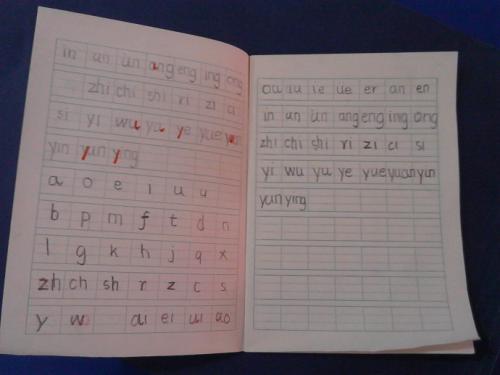 in un ün ang eng ing ong
zhi chi shi ri zi ci
si yi wu yu ye yue yuan
yin yun ying
a o e i u u
b p m f t d n
l g k h j q x
zh ch sh r z c s
y w ai ei ui ao
ou iu ie ue er an en
in un ün ang eng ing ong
zhi chi shi ri zi ci si
yi wu yu ye yue yuan yin
yun ying